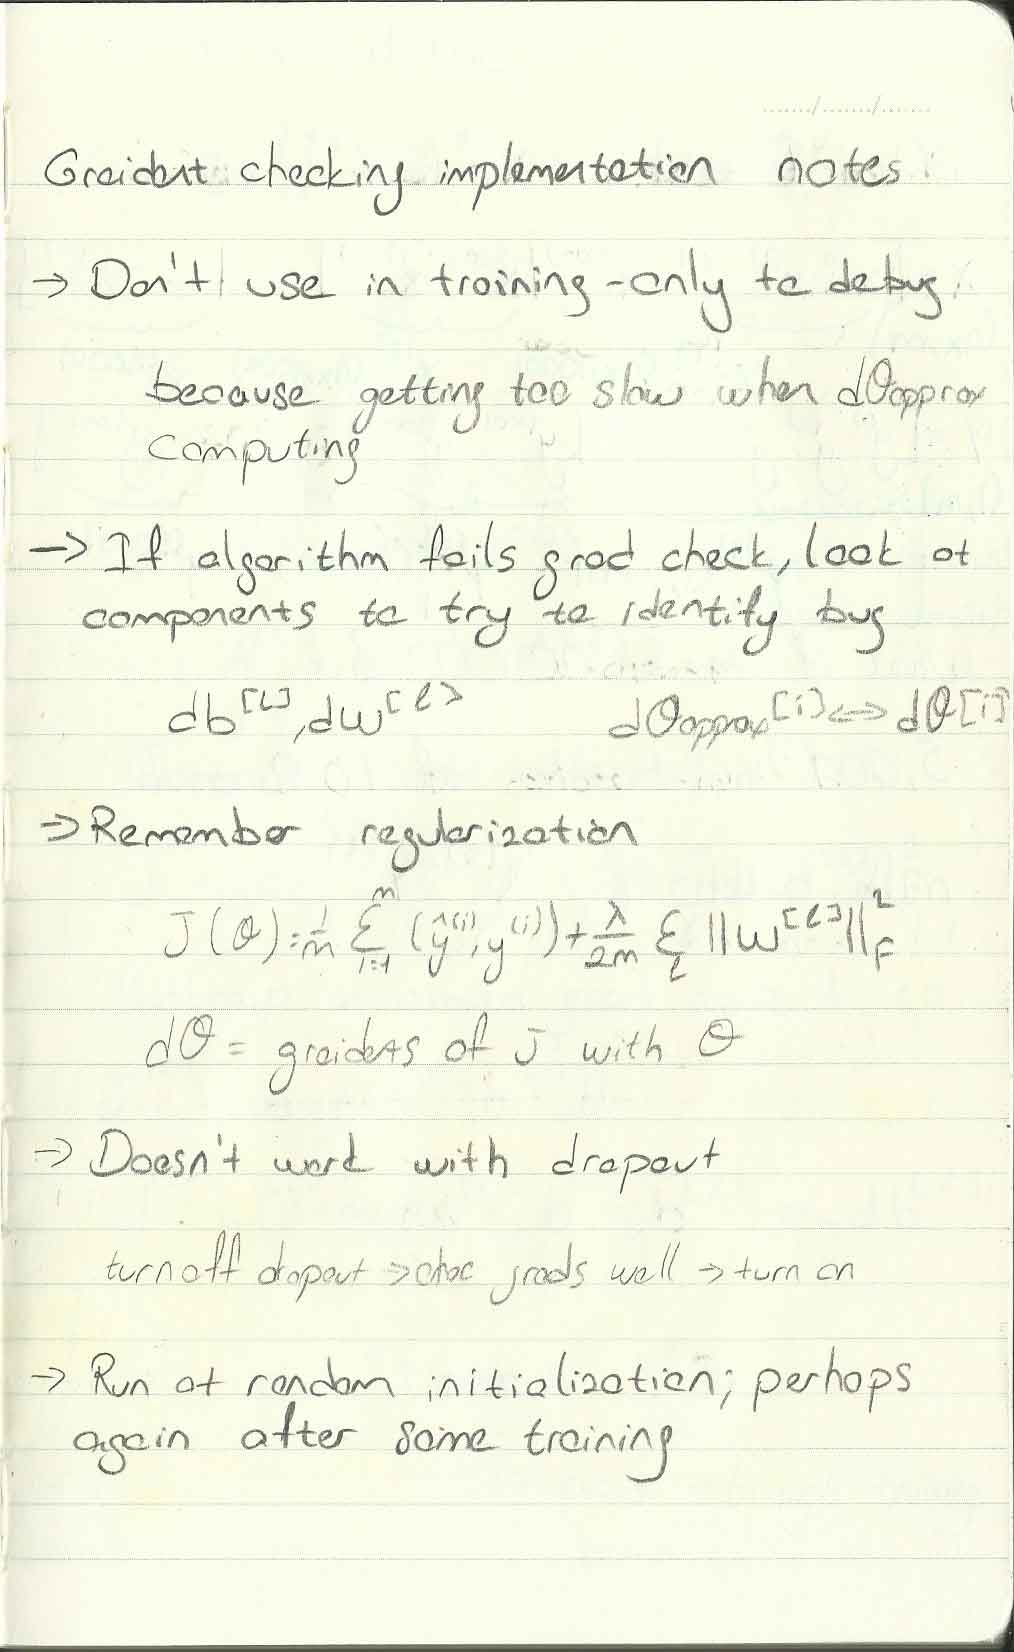 Graident checking implementation notes
→ Don't use in training - only to debug
because getting too slow when dθapprox
computing
→ If algorithm fails grad check, look at
components to try to identify bug
db^[l], dw^[l] dθapprox^[i] ⇔ dθ[i]
→ Remember regularization
J(θ) = 1/m Σ_{i=1}^{m} (ŷ^(i), y^(i)) + λ/2m Σ_l ||W^[l]||_F^2
dθ = graidents of J with θ
→ Doesn't work with dropout
turn off dropout → grads well → turn on
→ Run at random initialization; perhaps
again after some training